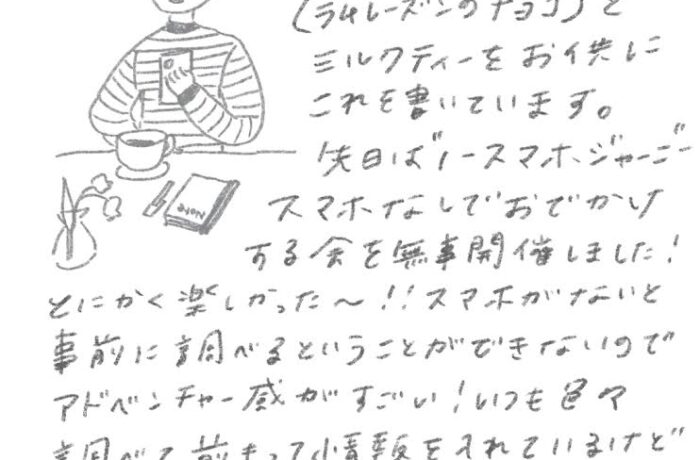 (ラムレーズンのチョコ)と
ミルクティーをお供に
これを書いています。
先日は"ノースマホジャーニー"
スマホなしでおでかけ
する会を無事開催しました!
とにかく楽しかった〜!!スマホがないと
事前に調べるということができないので
アドベンチャー感がすごい!いつも色々
調べて前もって情報を入れているけど
NOTE